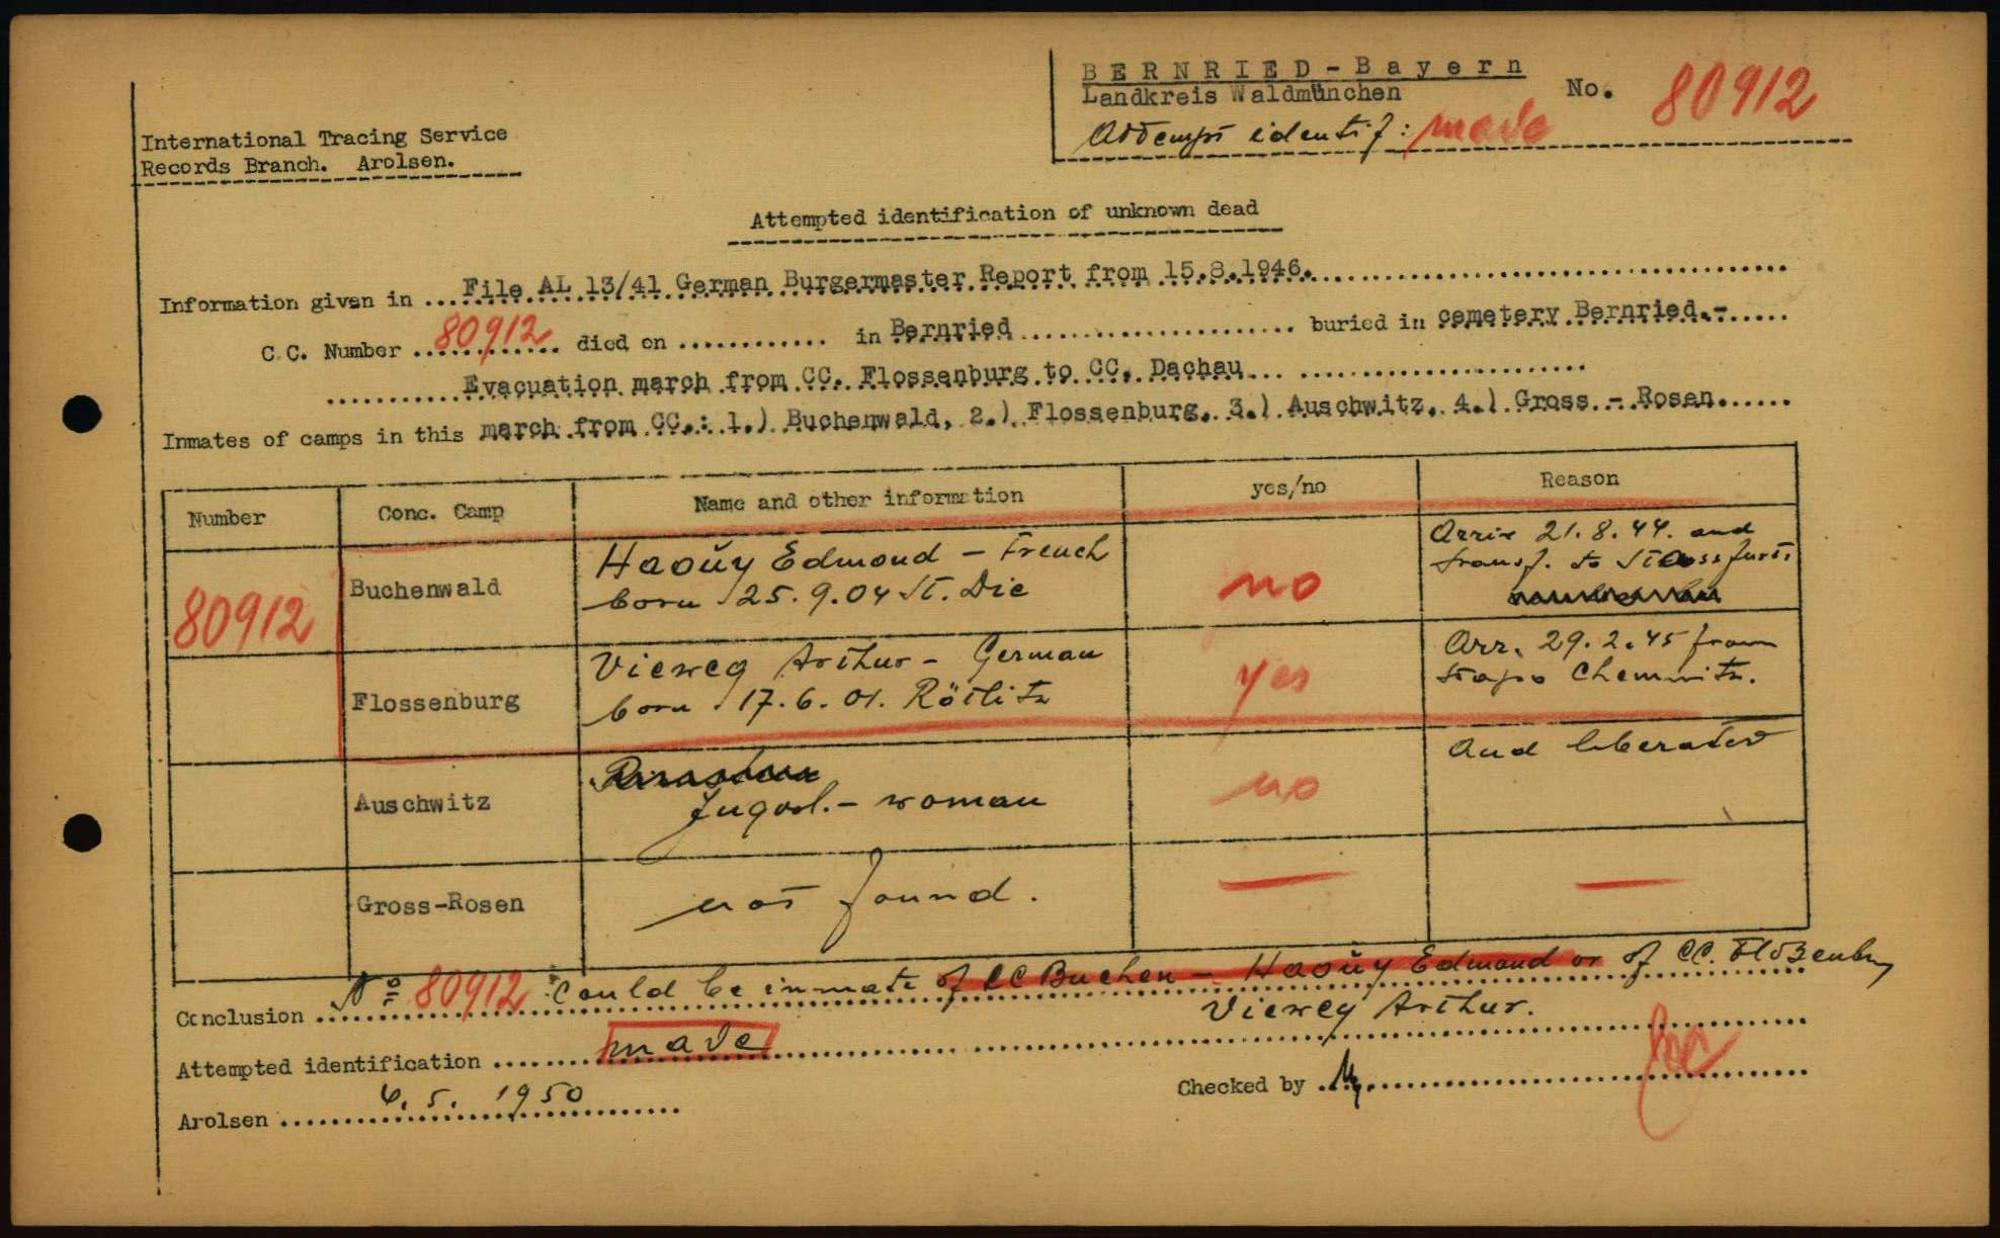 BERNRIED-Bayern
Landkreis Waldmünchen
No. 80912
Attempt identif: made
International Tracing Service
Records Branch. Arolsen.
Attempted identification of unknown dead
Information given in File AL 13/41 German Burgermaster Report from 15.8.1946.
C.C. Number 80912 died on ............ in Bernried ............ buried in cemetery Bernried.-
Evacuation march from CC. Flossenburg to CC. Dachau
Inmates of camps in this march from CC.: 1.) Buchenwald, 2.) Flossenburg, 3.) Auschwitz, 4.) Gross - Rosen.
Number Conc. Camp Name and other information yes/no Reason
80912 Buchenwald Haoüy Edmond - French born 25.9.04 St. Die no Arriv 21.8.44. and transf. to Stassfurt
Flossenburg Vieweg Arthur - German born 17.6.01. Rötlitz yes Arr. 29.2.45 from Stapo Chemnitz.
Auschwitz Jugosl. - woman no And liberated
Gross-Rosen not found. — —
Conclusion No 80912 could be inmate of CC Buchen - Haoüy Edmond or of CC. Floßenbg
Vieweg Arthur.
Attempted identification made
Checked by
Arolsen 6.5. 1950